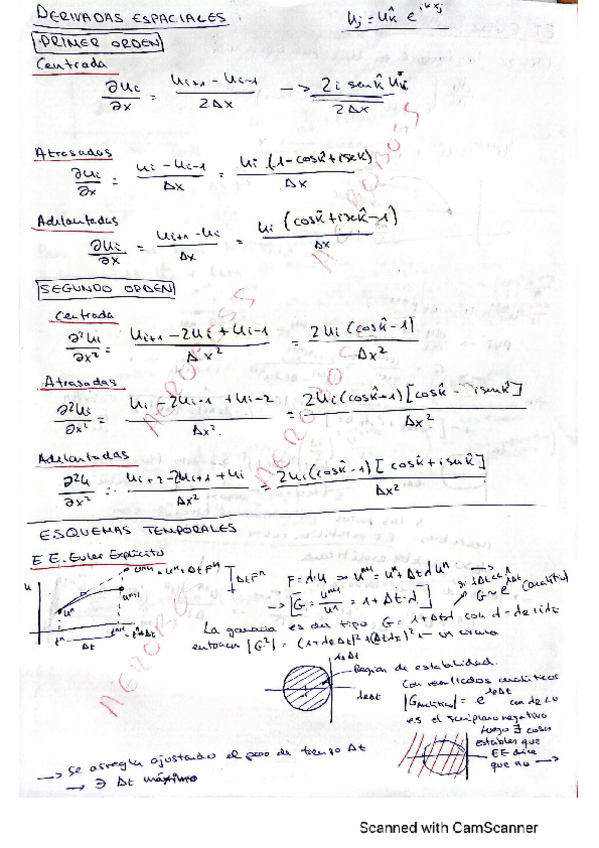 DERIVADAS ESPACIALES
u_j = û_k e^{ikx_j}
PRIMER ORDEN
Centrada
∂u_i/∂x = (u_{i+1} - u_{i-1})/2Δx → 2i sen k̂ u_i/2Δx
Atrasadas
∂u_i/∂x = (u_i - u_{i-1})/Δx = u_i (1 - cos k̂ + i sen k̂)/Δx
Adelantadas
∂u_i/∂x = (u_{i+1} - u_i)/Δx = u_i (cos k̂ + i sen k̂ - 1)/Δx
SEGUNDO ORDEN
Centrada
∂²u_i/∂x² = (u_{i+1} - 2u_i + u_{i-1})/Δx² = 2u_i (cos k̂ - 1)/Δx²
Atrasadas
∂²u_i/∂x² = (u_i - 2u_{i-1} + u_{i-2})/Δx² = 2u_i (cos k̂ - 1) [cos k̂ - i sen k̂]/Δx²
Adelantadas
∂²u/∂x² = (u_{i+2} - 2u_{i+1} + u_i)/Δx² = 2u_i (cos k̂ - 1) [cos k̂ + i sen k̂]/Δx²
ESQUEMAS TEMPORALES
E E. Euler Explícito
u^{n+1} = u^n + Δt F^n
Δt F^n
u
u^n
u^{n+1}
t^n
t^{n+1} = t^n + Δt
Δt
F = λu ⇒ u^{n+1} = u^n + Δt λ u^n
→ [G = u^{n+1}/u^n = 1 + Δt·λ]
La ganancia es del tipo G = 1 + Δt λ con λ =
entonces |G²| = (1 + λ_R Δt)² + (Δt λ_I)² — un círculo
λ_I Δt
Región de estabilidad.
λ_R Δt
Con resultados analíticos
|G_analítico| = e^{λ_R Δt} con λ_R < 0
es el semiplano negativo
Luego ∃ cosas
estables que
EE dice
que no →
→ Se arregla ajustando el paso de tiempo Δt
→ ∃ Δt máximo
AEROBOSS
AEROBOSS
AEROBOSS
AEROBOSS
Scanned with CamScanner